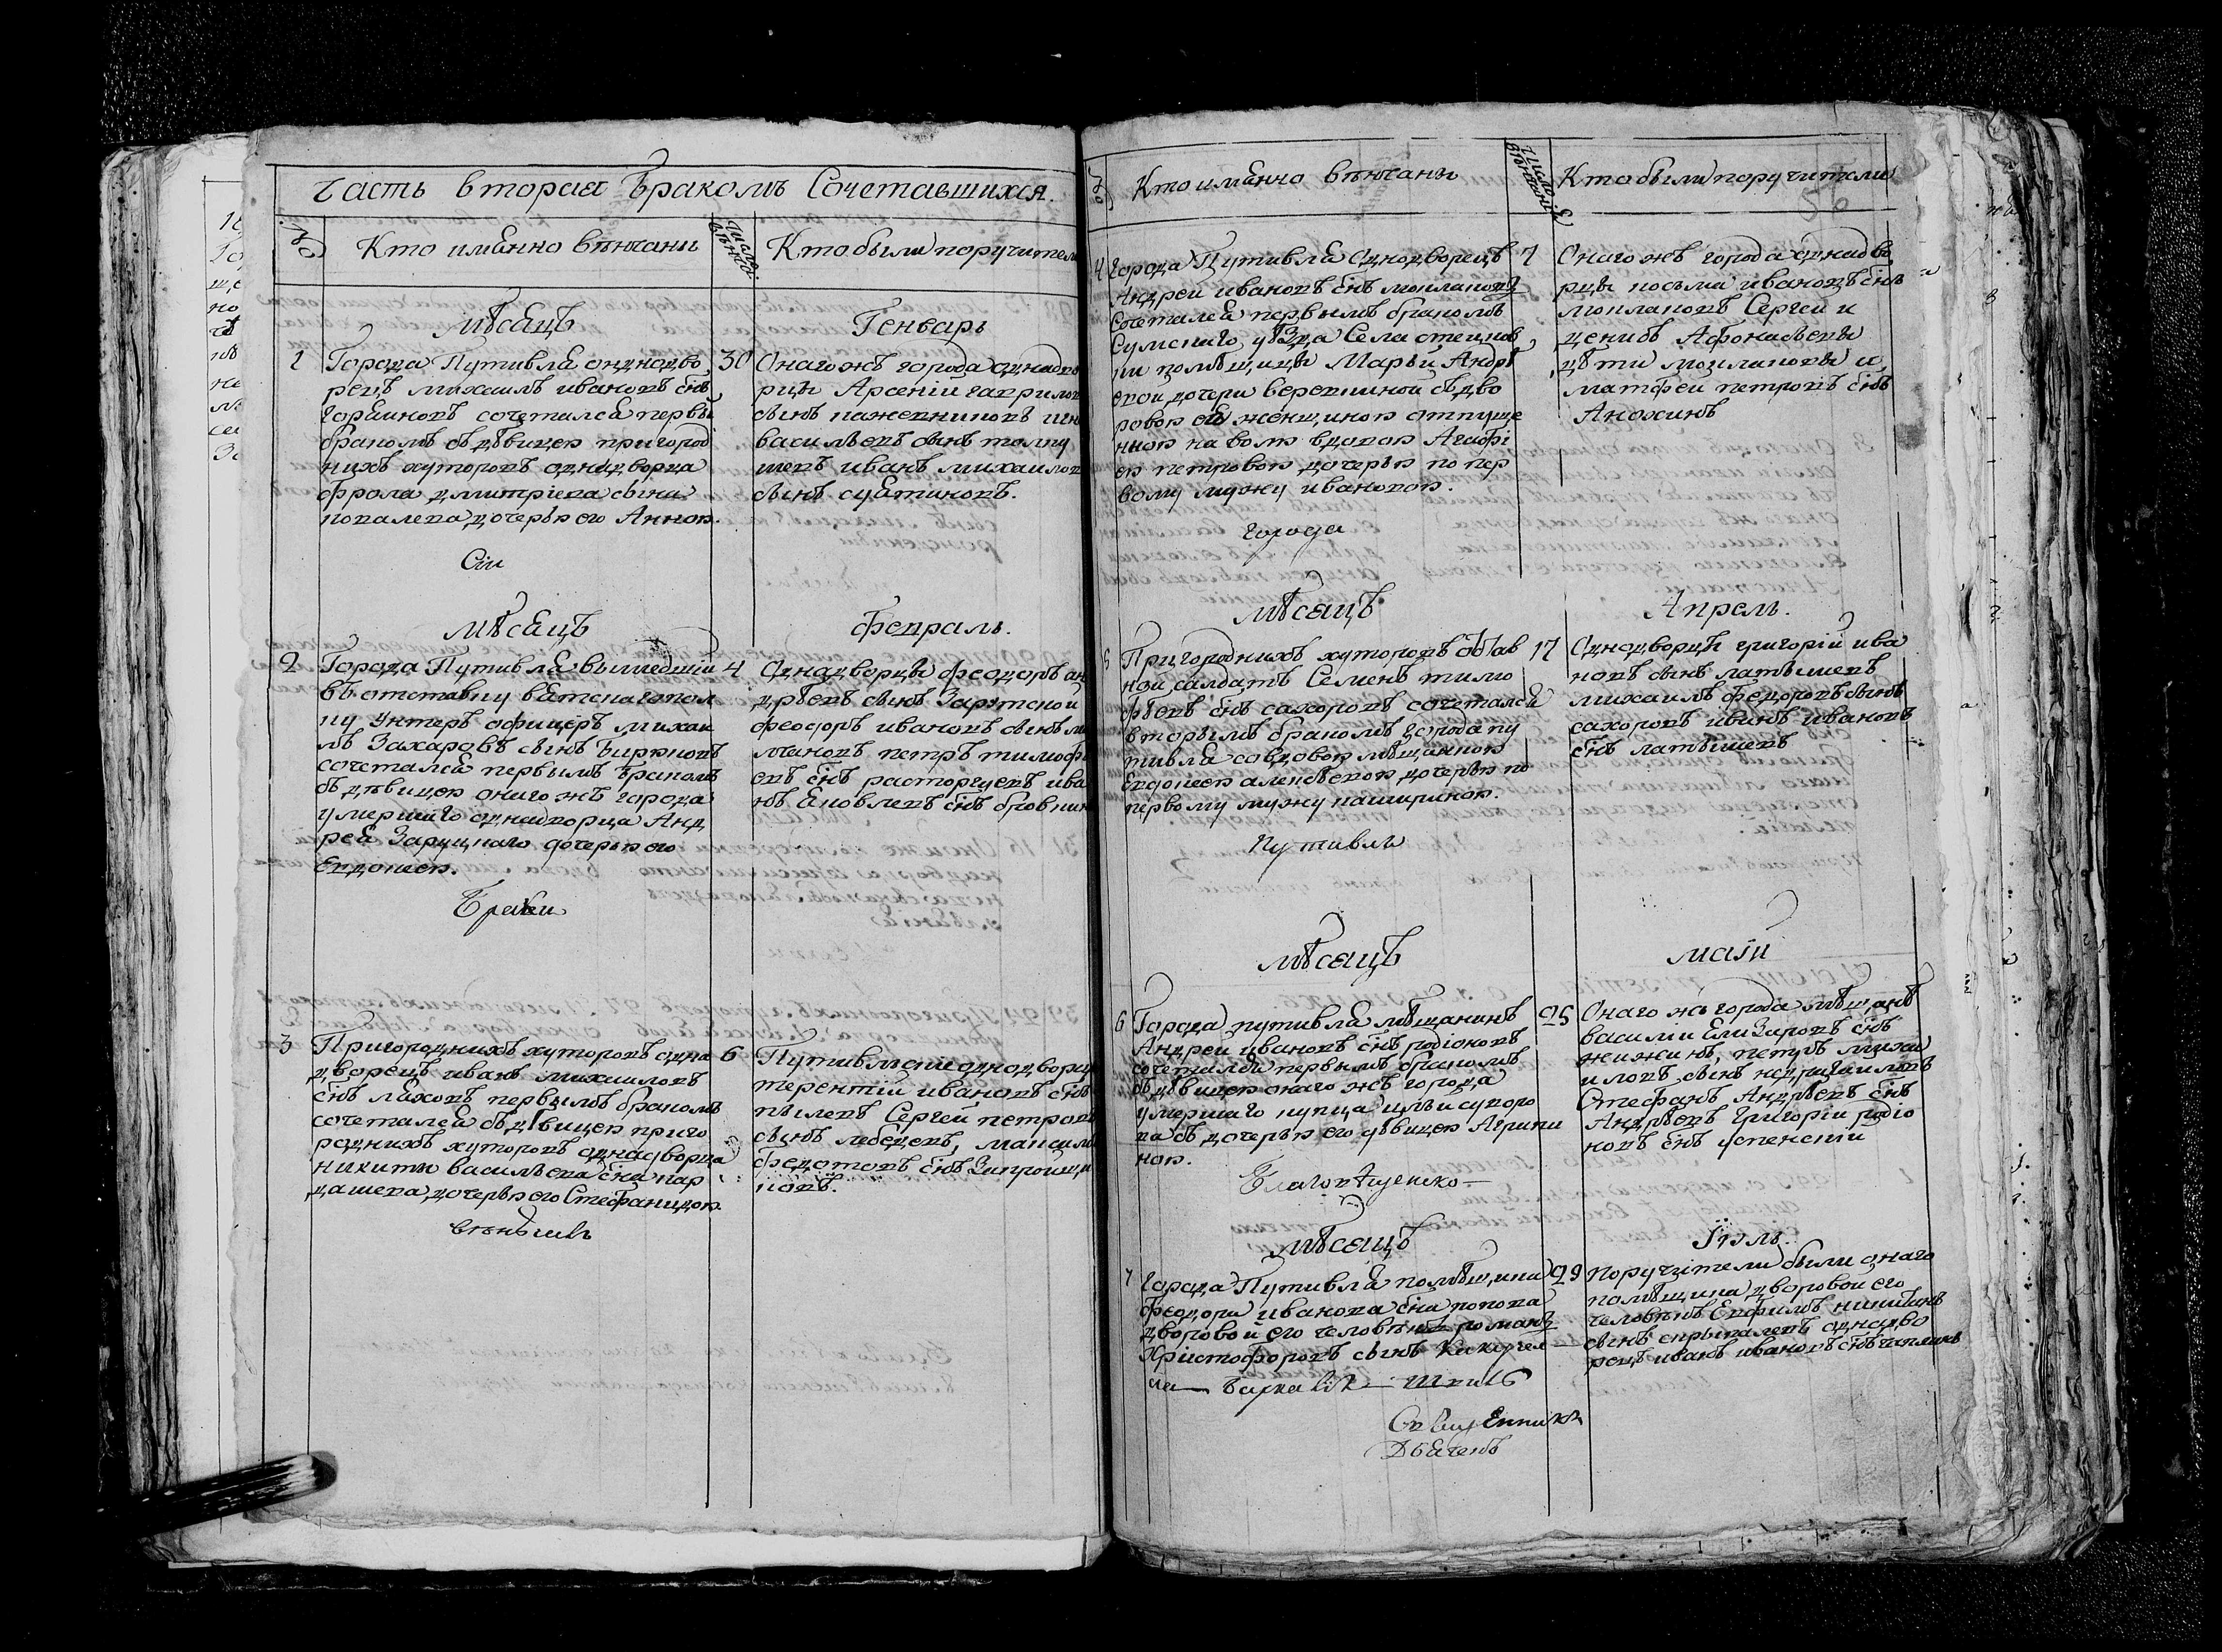 Часть вторая бракомъ Сочетавшихся.
№
Кто имянно венчаны
Число венча
Кто были поручител
Месяцъ
Генварь
1
Города Путивля однадво
рецъ михаилъ ивановъ снъ
горяиновъ сочетался первы
бракомъ съ девицею пригород
нихъ хуторовъ однадворца
фрола дмитриева сына
ковалева дочерью его Анною.
30
Онаго жъ города однадво
рцы Арсеній гаврилов
сынъ
васильевъ сынъ толпу
шевъ иванъ михаилов
сынъ
Сіи
месяцъ
февраль.
2
Города Путивля вышедшій
въ отставку вятскаго пол
ку Унтеръ офицеръ михаи
лъ Захаровъ сынъ Бирюковъ
сочетался первымъ бракомъ
съ девицею онаго жъ города
умершаго однадворца Анд
рея Заруцкаго дочерью его
Евдокиею.
4
Однадворцы феодоръ ан
древъ сынъ Зарутской
феодоръ ивановъ сынъ
мановъ петръ тимофе
евъ снъ расторгуевъ ива
нъ Яковлевъ снъ
Браки
3
Пригороднихъ хуторовъ одна
дворецъ иванъ михаиловъ
снъ ляховъ первымъ бракомъ
сочетался съ девицею приго
роднихъ хуторовъ однадворца
никиты васильева сна кар
дашева дочерью его Стефанидою.
6
Путивлскіе однодворц
терентій ивановъ снъ
пылевъ Сергей петровъ
сынъ лебедевъ, максимъ
федотовъ снъ
ковъ.
венчалъ
№
Кто имянно венчаны
Число венчанія
Кто были поручители
50
4
города Путивля однодворецъ
Андреи ивановъ снъ моклаковъ
сочетался первымъ бракомъ
Сумскаго уезда Села стецков
ки помещицы Марьи Андре
евой дочери веревкиной съ дво
ровою ея женщиною отпуще
нною на волю вдовою Агафі
ею петровою дочерью по пер
вому мужу ивановою.
7
Онаго жъ города однадво
рцы косма ивановъ снъ
моклаковъ Сергеи и
денисъ Афонасьевы
дети моклаковы и
матфеи петровъ снъ
Анохинъ
города
месяцъ
Апрель.
5
Пригороднихъ хуторовъ отстав
ной салдатъ Семенъ тимо
феевъ снъ сахоровъ сочетался
вторымъ бракомъ города пу
тивля со вдовою мещанкою
Евдокиею алексеевою дочерью по
первому мужу кашириною.
17
Однодворцы григорій ива
новъ сынъ латышевъ
михаилъ федоровъ сынъ
сахоровъ иванъ ивановъ
снъ латышевъ
Путивля
месяцъ
маіи
6
Города путивля мещанинъ
Андреи ивановъ снъ родіоновъ
сочетался первымъ бракомъ
съ девицею онаго жъ города
умершаго купца ильи сукоро
ва съ дочерью его девицею Агрипи
ною.
25
Онаго жъ города мещане
василіи Елизаровъ снъ
жижинъ, петръ михаи
иловъ сынъ недригаиловъ
Стефанъ Андреевъ снъ
Андреевъ григоріи родіо
новъ снъ успенскіи
Благовещенско—
месяцъ
Іюль.
7
города Путивля помещика
феодора иванова сна попова
дворовой его человекъ романъ
Христофоровъ сынъ
29
Поручители были онаго
помещика дворовои его
человекъ Евфимъ никитинъ
сынъ скрыпалевъ однодво
рецъ иванъ ивановъ снъ
Священникъ